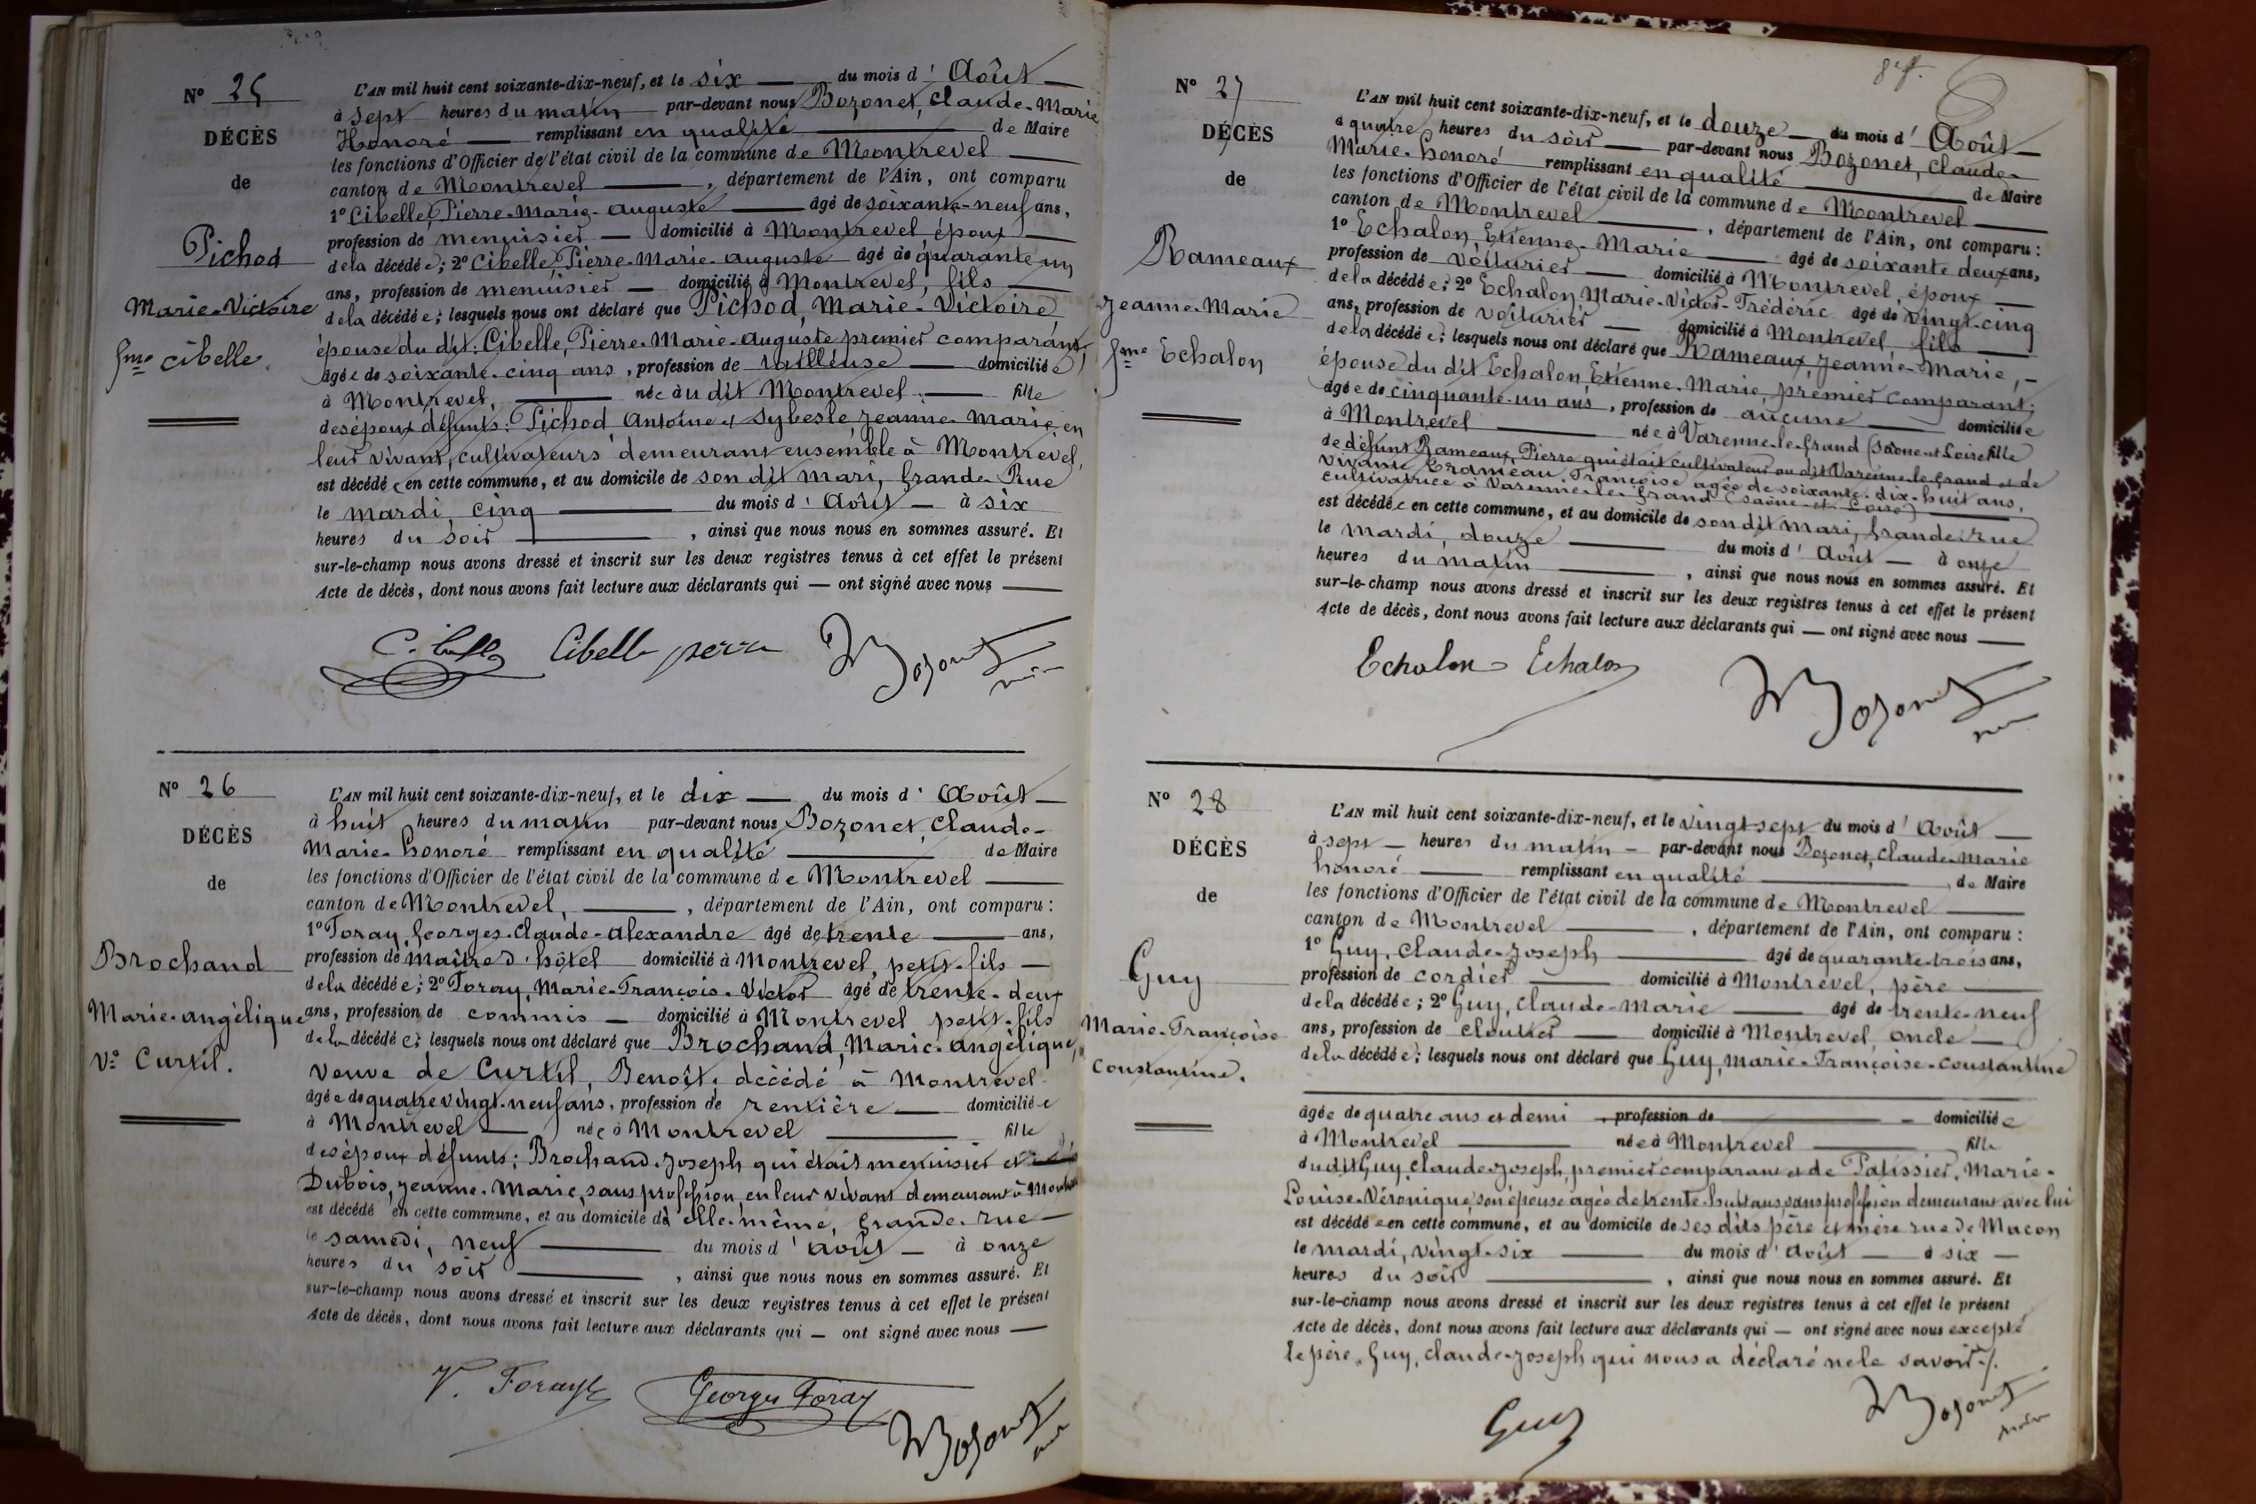 Nº 25
DÉCÈS
de
Pichod
Marie-Victoire
fme Cibelle.
L'AN mil huit cent soixante-dix-neuf, et le six du mois d' Août
à sept heures du matin par-devant nous Bozonet, Claude-Marie
Honoré remplissant en qualité de Maire
les fonctions d'Officier de l'état civil de la commune de Montrevel
canton de Montrevel , département de l'Ain, ont comparu
1º Cibelle, Pierre-Marie-Auguste âgé de soixante-neuf ans,
profession de menuisier domicilié à Montrevel, époux
de la décédée; 2º Cibelle, Pierre-Marie-Auguste âgé de quarante un
ans, profession de menuisier domicilié à Montrevel, fils
de la décédée; lesquels nous ont déclaré que Pichod, Marie-Victoire
épouse du dit: Cibelle, Pierre-Marie-Auguste premier comparant,
âgée de soixante-cinq ans, profession de tailleuse domiciliée
à Montrevel, née au dit Montrevel fille
des époux défunts: Pichod Antoine et Sybeste Jeanne-Marie, en
leur vivant, cultivateurs demeurant ensemble à Montrevel,
est décédée en cette commune, et au domicile de son dit mari, Grande Rue
le mardi, cinq du mois d' Août à six
heures du soir , ainsi que nous nous en sommes assuré. Et
sur-le-champ nous avons dressé et inscrit sur les deux registres tenus à cet effet le présent
Acte de décès, dont nous avons fait lecture aux déclarants qui — ont signé avec nous
Cibelle Cibelle perre Bozonet
Nº 26
DÉCÈS
de
Brochand
Marie-Angélique
Ve Curtil.
L'AN mil huit cent soixante-dix-neuf, et le dix du mois d' Août
à huit heures du matin par-devant nous Bozonet, Claude-
Marie-Honoré remplissant en qualité de Maire
les fonctions d'Officier de l'état civil de la commune de Montrevel
canton de Montrevel, , département de l'Ain, ont comparu:
1º Foray, Georges-Claude-Alexandre âgé de trente ans,
profession de maître d'hôtel domicilié à Montrevel, petit-fils
de la décédée; 2º Foray, Marie-François-Victor âgé de trente-deux
ans, profession de commis domicilié à Montrevel petit-fils
de la décédée; lesquels nous ont déclaré que Brochand, Marie-Angélique,
veuve de Curtil, Benoît, décédé à Montrevel
âgée de quatre vingt-neuf ans, profession de rentière domiciliée
à Montrevel née à Montrevel fille
des époux défunts: Brochand Joseph qui était menuisier et
Dubois, Jeanne-Marie, sans profession, en leur vivant demeurant à Mont
est décédé en cette commune, et au domicile de elle-même, Grande-rue
le samedi, neuf du mois d' Août à onze
heures du soir , ainsi que nous nous en sommes assuré. Et
sur-le-champ nous avons dressé et inscrit sur les deux registres tenus à cet effet le présent
Acte de décès, dont nous avons fait lecture aux déclarants qui — ont signé avec nous
V. Foray Georges Foray Bozonet
Nº 27
DÉCÈS
de
Rameaux
Jeanne-Marie
fme Echalon
L'AN mil huit cent soixante-dix-neuf, et le douze du mois d' Août
à quatre heures du soir par-devant nous Bozonet, Claude-
Marie-Honoré remplissant en qualité de Maire
les fonctions d'Officier de l'état civil de la commune de Montrevel
canton de Montrevel , département de l'Ain, ont comparu:
1º Echalon, Etienne-Marie âgé de soixante deux ans,
profession de voiturier domicilié à Montrevel, époux
de la décédée; 2º Echalon, Marie-Victor-Frédéric âgé de vingt-cinq
ans, profession de voiturier domicilié à Montrevel fils
de la décédée; lesquels nous ont déclaré que Rameaux, Jeanne-Marie,
épouse du dit Echalon Etienne-Marie, premier comparant;
âgée de cinquante-un ans, profession de aucune domiciliée
à Montrevel née à Varenne-le-Grand (Saône-et-Loire) fille
de défunt Rameaux, Pierre qui était cultivateur au dit Varenne-le-Grand et de
vivante Erameau Françoise agée de soixante-dix-huit ans,
cultivatrice à Varenne-le-Grand (Saône-et-Loire)
est décédée en cette commune, et au domicile de son dit mari, Grande Rue
le mardi, douze du mois d' Août à onze
heures du matin , ainsi que nous nous en sommes assuré. Et
sur-le-champ nous avons dressé et inscrit sur les deux registres tenus à cet effet le présent
Acte de décès, dont nous avons fait lecture aux déclarants qui — ont signé avec nous
Echalon Echalon Bozonet
Nº 28
DÉCÈS
de
Guy
Marie-Françoise
Constantine.
L'AN mil huit cent soixante-dix-neuf, et le vingt-sept du mois d' Août
à sept heures du matin par-devant nous Bozonet, Claude-Marie
honoré remplissant en qualité de Maire
les fonctions d'Officier de l'état civil de la commune de Montrevel
canton de Montrevel , département de l'Ain, ont comparu:
1º Guy, Claude-Joseph âgé de quarante-trois ans,
profession de cordier domicilié à Montrevel, père
de la décédée; 2º Guy, Claude-Marie âgé de trente-neuf
ans, profession de cloutier domicilié à Montrevel oncle
de la décédée; lesquels nous ont déclaré que Guy, Marie-Françoise-Constantine
âgée de quatre ans et demi , profession de domiciliée
à Montrevel née à Montrevel fille
du dit Guy, Claude-Joseph, premier comparant et de Patissier, Marie-
Louise-Véronique, son épouse agée de trente-huit ans, sans profession demeurant avec lui
est décédée en cette commune, et au domicile de ses dits père et mère rue de Macon
le mardi, vingt-six du mois d' Août à six
heures du soir , ainsi que nous nous en sommes assuré. Et
sur-le-champ nous avons dressé et inscrit sur les deux registres tenus à cet effet le présent
Acte de décès, dont nous avons fait lecture aux déclarants qui — ont signé avec nous excepté
le père, Guy, Claude-Joseph qui nous a déclaré ne le savoir./.
Guy Bozonet